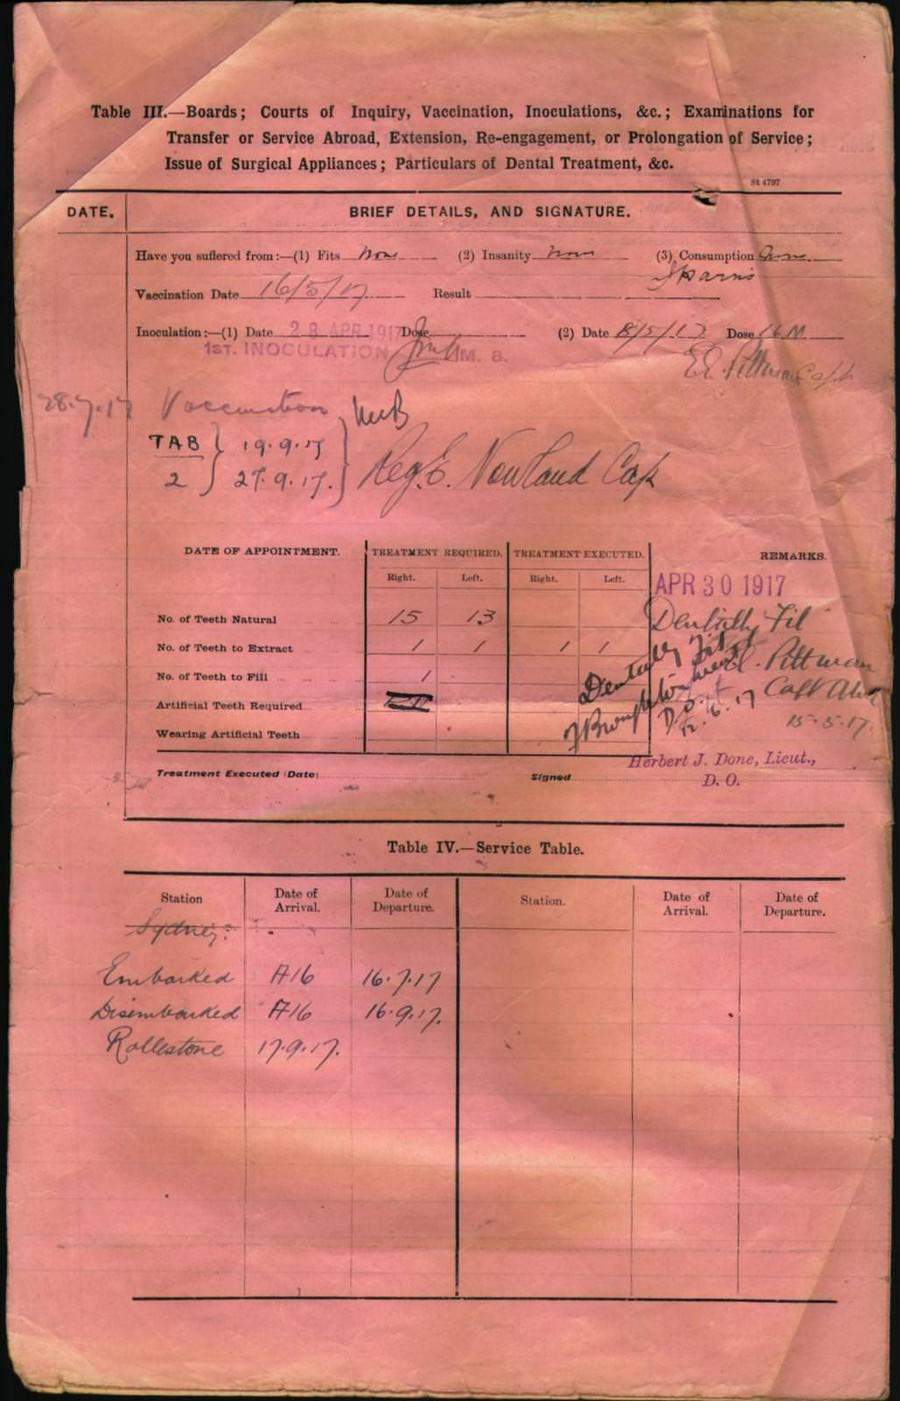 Table III.—Boards; Courts of Inquiry, Vaccination, Inoculations, &c.; Examinations for
Transfer or Service Abroad, Extension, Re-engagement, or Prolongation of Service;
Issue of Surgical Appliances; Particulars of Dental Treatment, &c.
St 4797
DATE. BRIEF DETAILS, AND SIGNATURE.
Have you suffered from:—(1) Fits (2) Insanity (3) Consumption
Vaccination Date 16/5/17 Result
Inoculation:—(1) Date 28 APR 1917 Dose (2) Date 8/5/17 Dose 16 M
1ST. INOCULATION M. 8.
E.E. Pittman Capt
28.7.17 Vaccination
TAB 19.9.17
2 27.9.17. Reg. E. Newland Cap
DATE OF APPOINTMENT. TREATMENT REQUIRED. TREATMENT EXECUTED. REMARKS.
Right. Left. Right. Left. APR 30 1917
No. of Teeth Natural 15 13 Dentally Fit
No. of Teeth to Extract 1 1 1 1 Pittman
No. of Teeth to Fill 1 Dentally Fit Capt
Artificial Teeth Required D.O. 12.6.17 15-5-17.
Wearing Artificial Teeth
Herbert J. Done, Lieut.,
Treatment Executed (Date) Signed D. O.
Table IV.—Service Table.
Station Date of Arrival. Date of Departure. Station. Date of Arrival. Date of Departure.
Sydney
Embarked A16 16.7.17
Disembarked A16 16.9.17.
Rollestone 17.9.17.